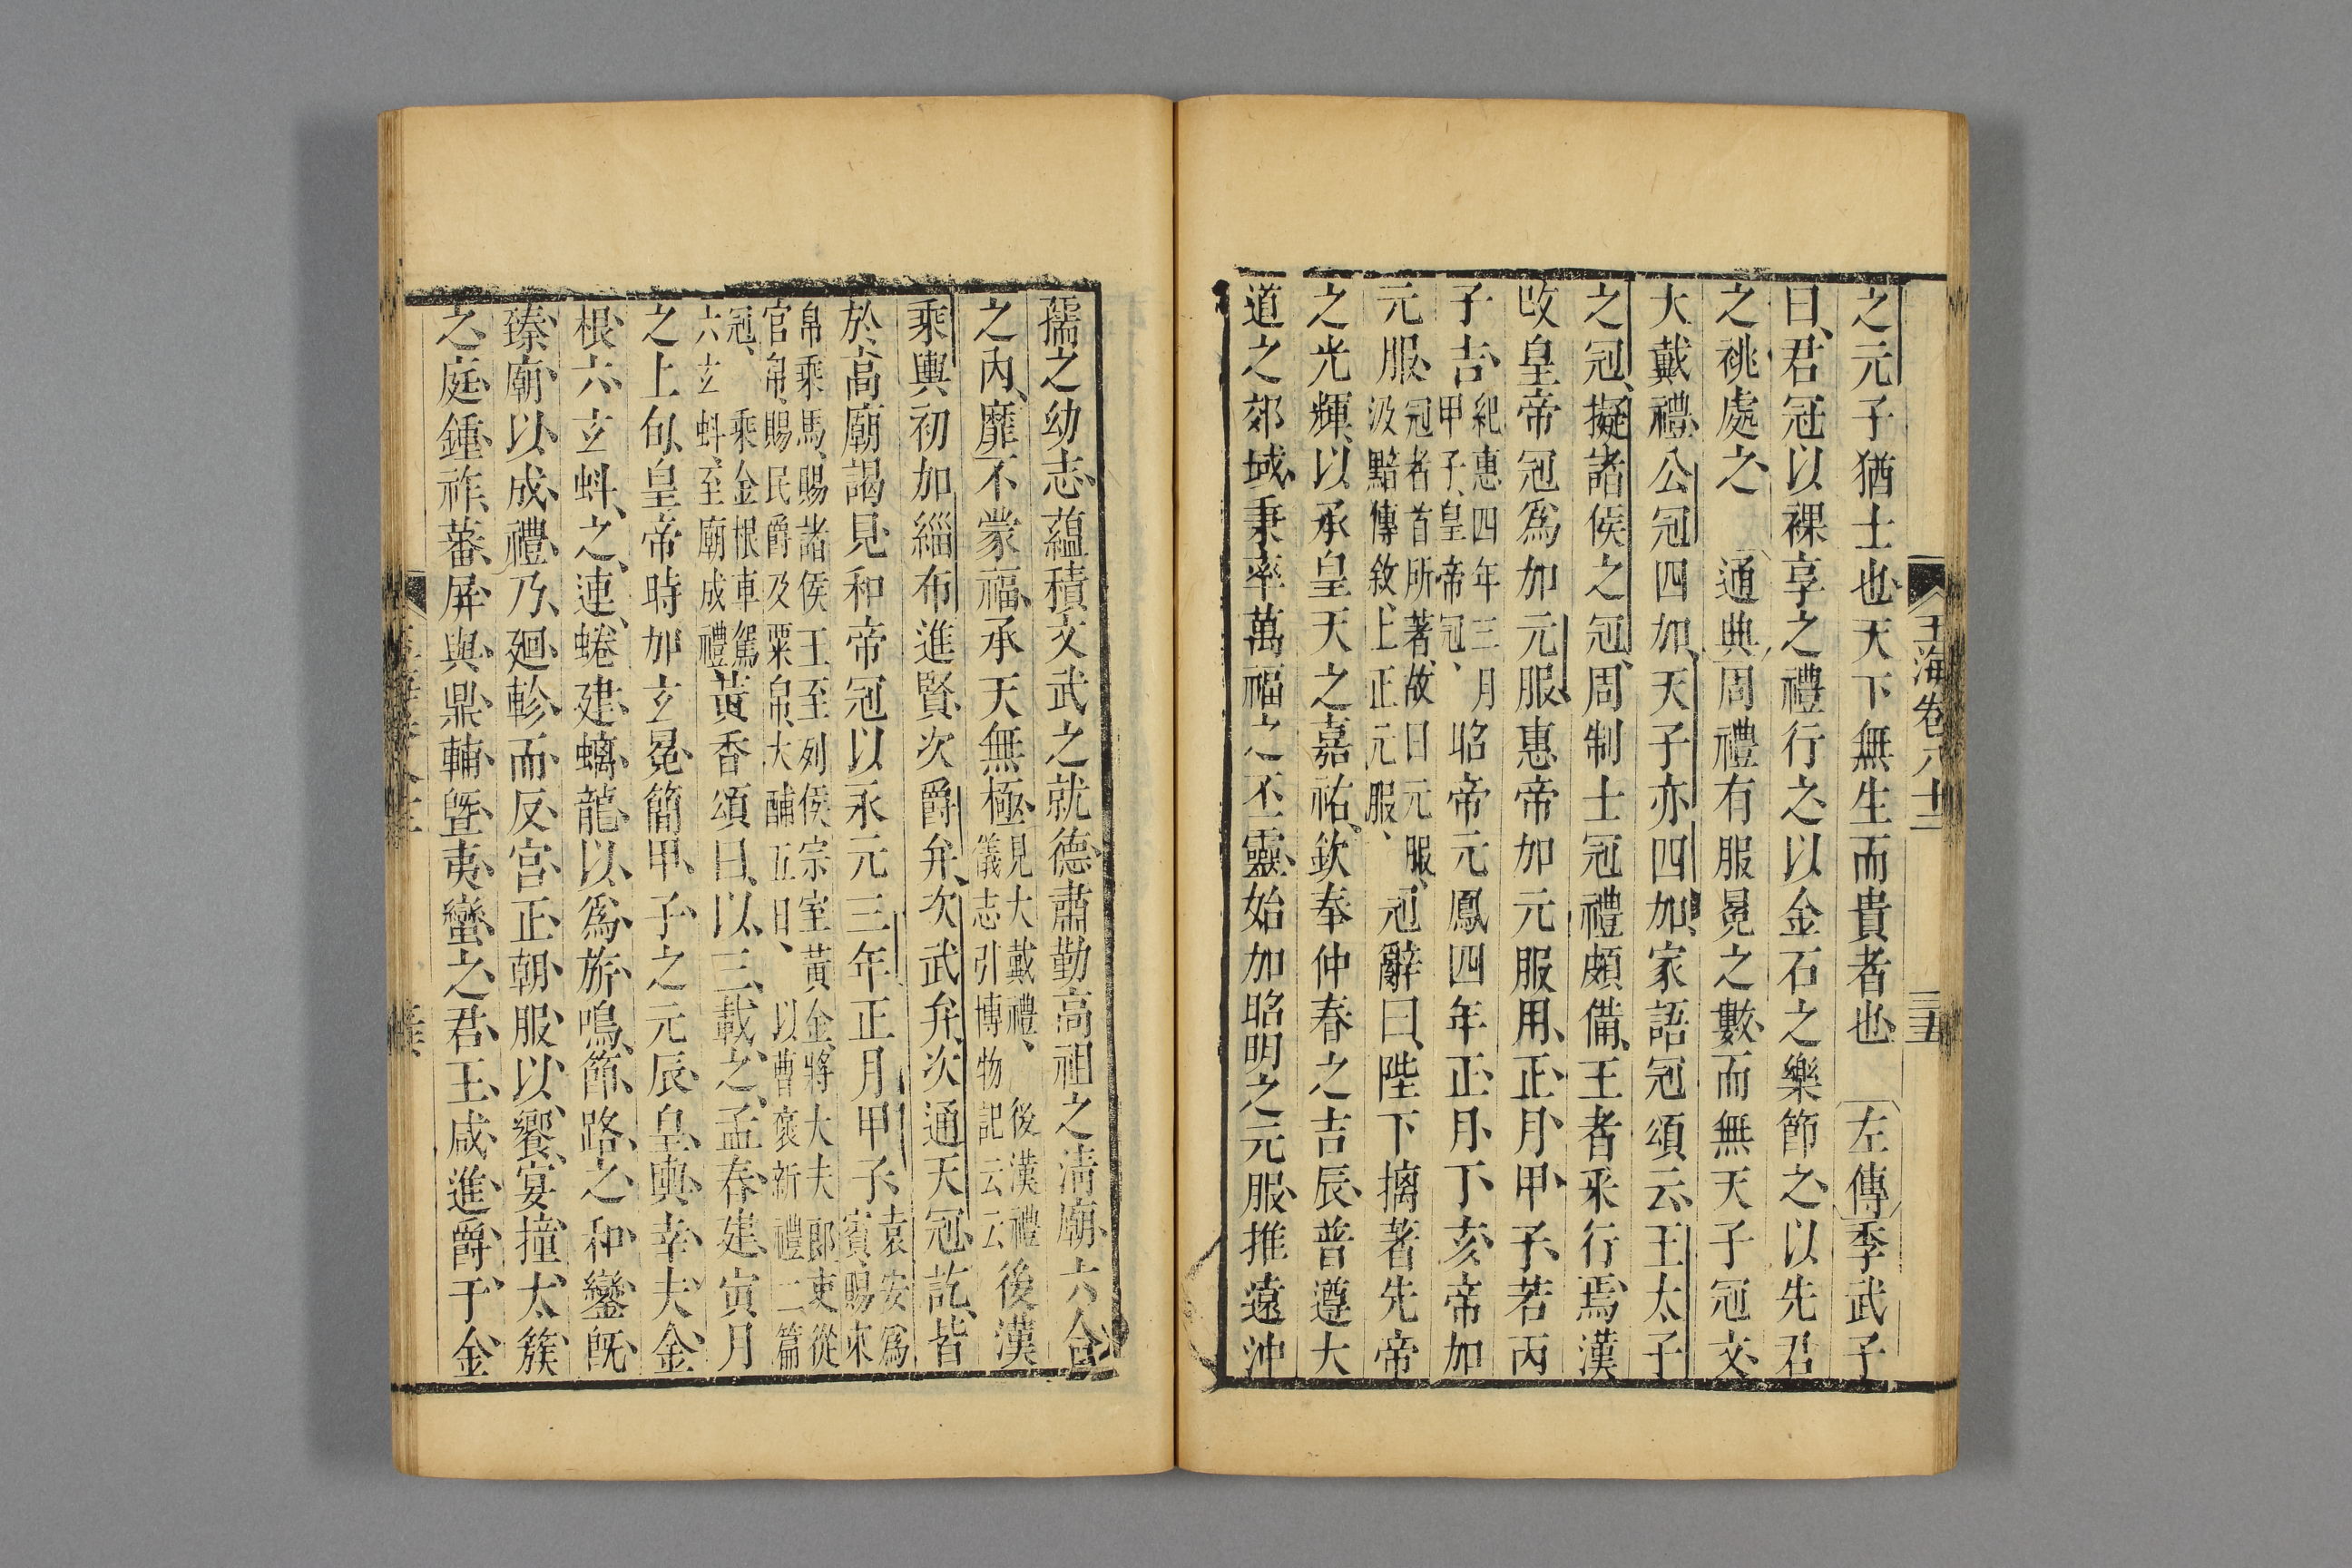 玉海卷八十二
三五
之元子猶士也天下無生而貴者也 左傳季武子
曰君冠以祼享之禮行之以金石之樂節之以先君
之祧處之 通典周禮有服冕之數而無天子冠文
大戴禮公冠四加天子亦四加家語冠頌云王太子
之冠擬諸侯之冠周制士冠禮頗備王者采行焉漢
改皇帝冠爲加元服惠帝加元服用正月甲子若丙
子吉紀惠四年三月甲子皇帝冠昭帝元鳳四年正月丁亥帝加
元服冠者首所著故曰元服汲黯傳敘上正元服冠辭曰陛下摛著先帝
之光輝以承皇天之嘉祐欽奉仲春之吉辰普遵大
道之郊域秉率萬福之丕靈始加昭明之元服推遠沖
孺之幼志蘊積文武之就德肅勤高祖之清廟六合
之內靡不蒙福承天無極見大戴禮後漢禮儀志引博物記云云後漢
乘輿初加緇布進賢次爵弁次武弁次通天冠訖皆
於高廟謁見和帝冠以永元三年正月甲子袁安爲賓賜束
帛乘馬賜諸侯王至列侯宗室黃金將大夫郎吏從官帛賜民爵及粟帛大酺五日以曹褒新禮二篇
冠乘金根車駕六玄虯至廟成禮黃香頌曰以三載之孟春建寅月
之上旬皇帝時加玄冕簡甲子之元辰皇輿幸夫金
根六玄虯之連蜷建螭龍以爲旂鳴節路之和鑾旣
臻廟以成禮乃廻軫而反宮正朝服以饗宴撞太簇
之庭鍾祚蕃屏與鼎輔曁夷蠻之君王咸進爵于金